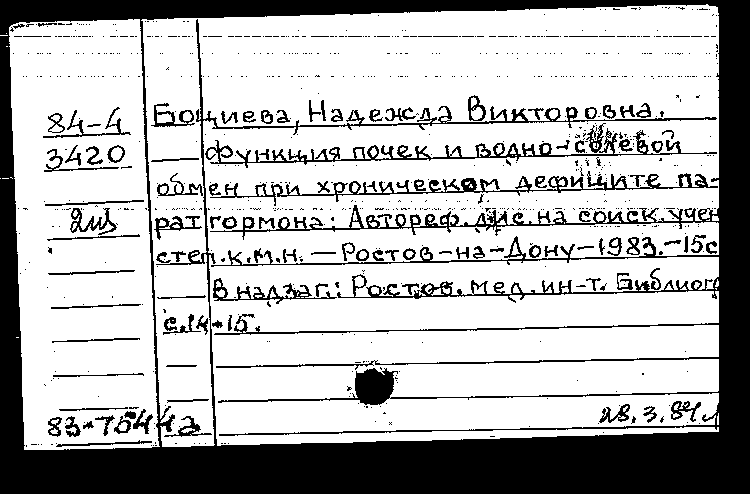 84-4
3420
2из
Боциева, Надежда Викторовна.
Функция почек и водно-солевой
обмен при хроническом дефиците па-
ратгормона: Автореф. дис. на соиск. учен
степ. к.м.н. — Ростов-на-Дону — 1983. — 15с
В надзаг.: Ростов. мед. ин-т. Библиогр
с. 14-15.
83-75442
28.3.84